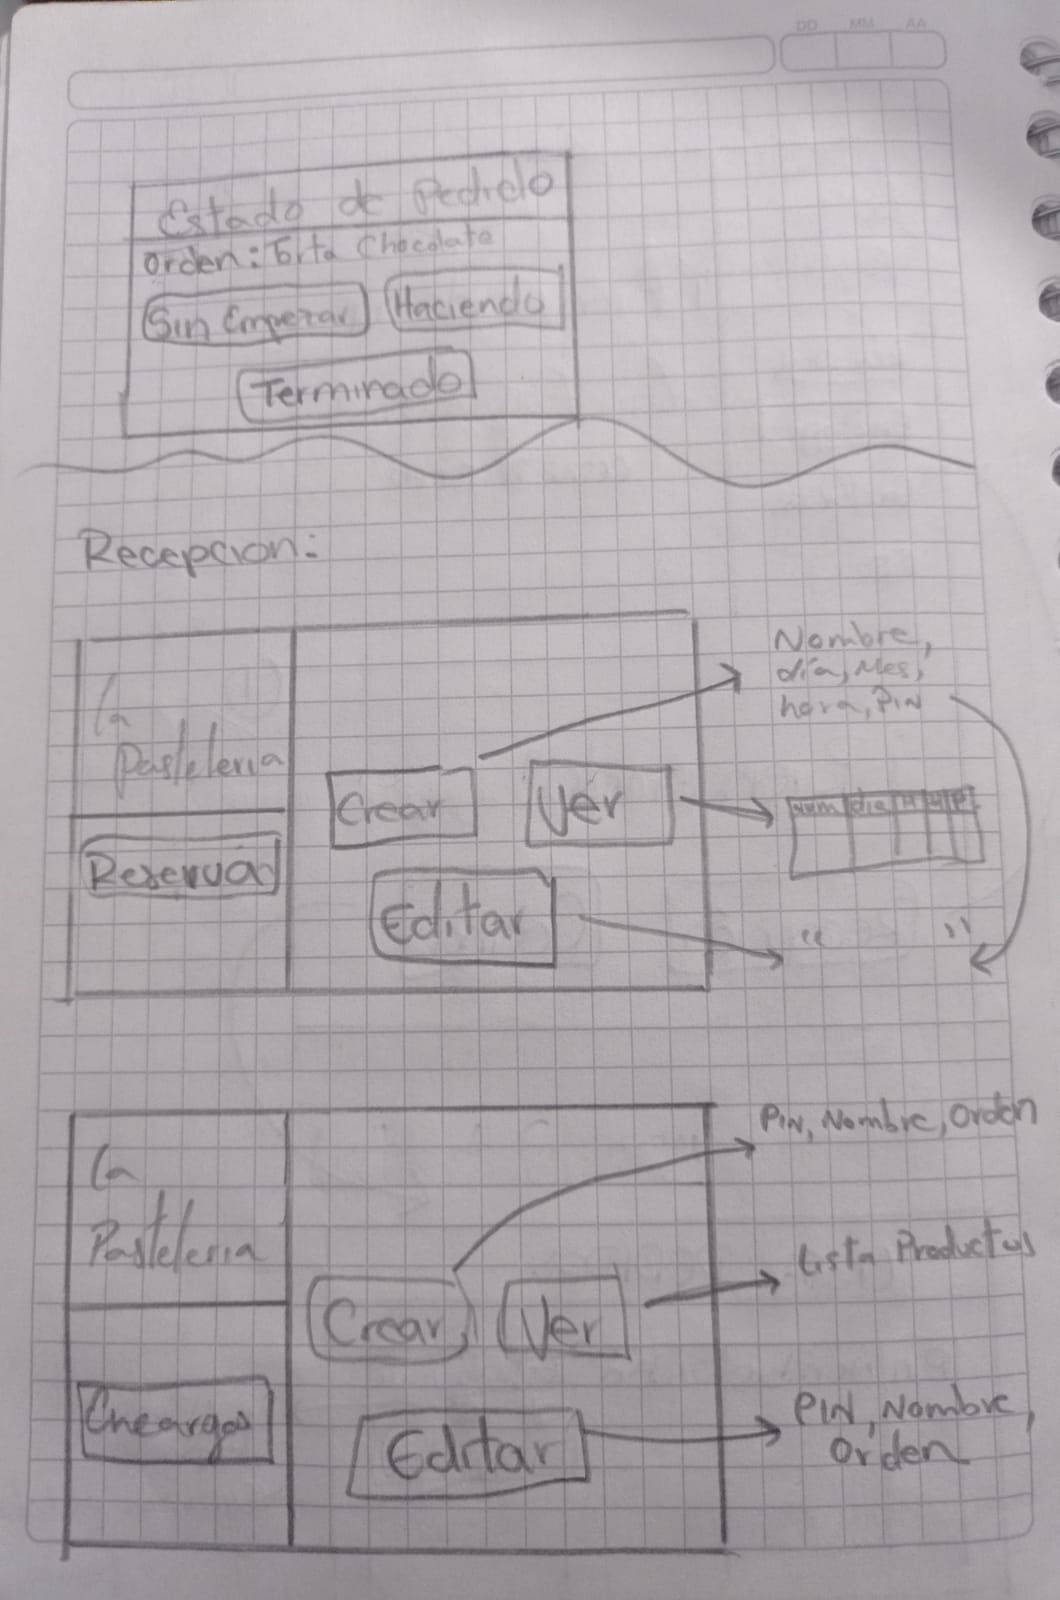 DD MM AA
Estado de Pedido
Orden: Torta Chocolate
Sin Empezar
Haciendo
Terminado
Recepcion:
La
Pasteleria
Reservas
Crear
Ver
Editar
Nombre,
día, Mes,
hora, PIN
Nom dia H M P
" "
La
Pasteleria
Encargos
Crear
Ver
Editar
PIN, Nombre, Orden
Lista Productos
PIN, Nombre,
Orden